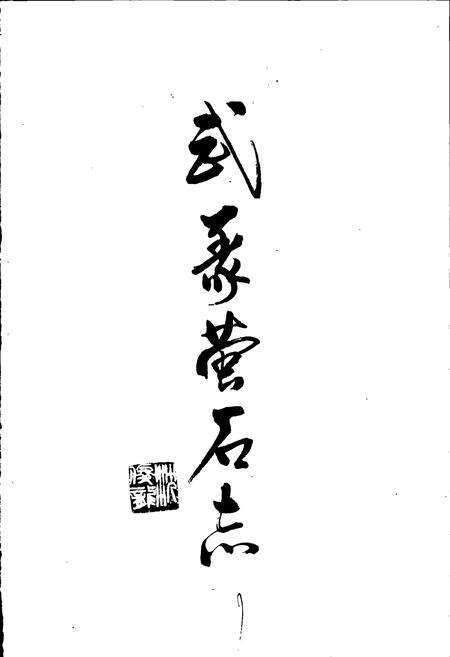 武义萤石志